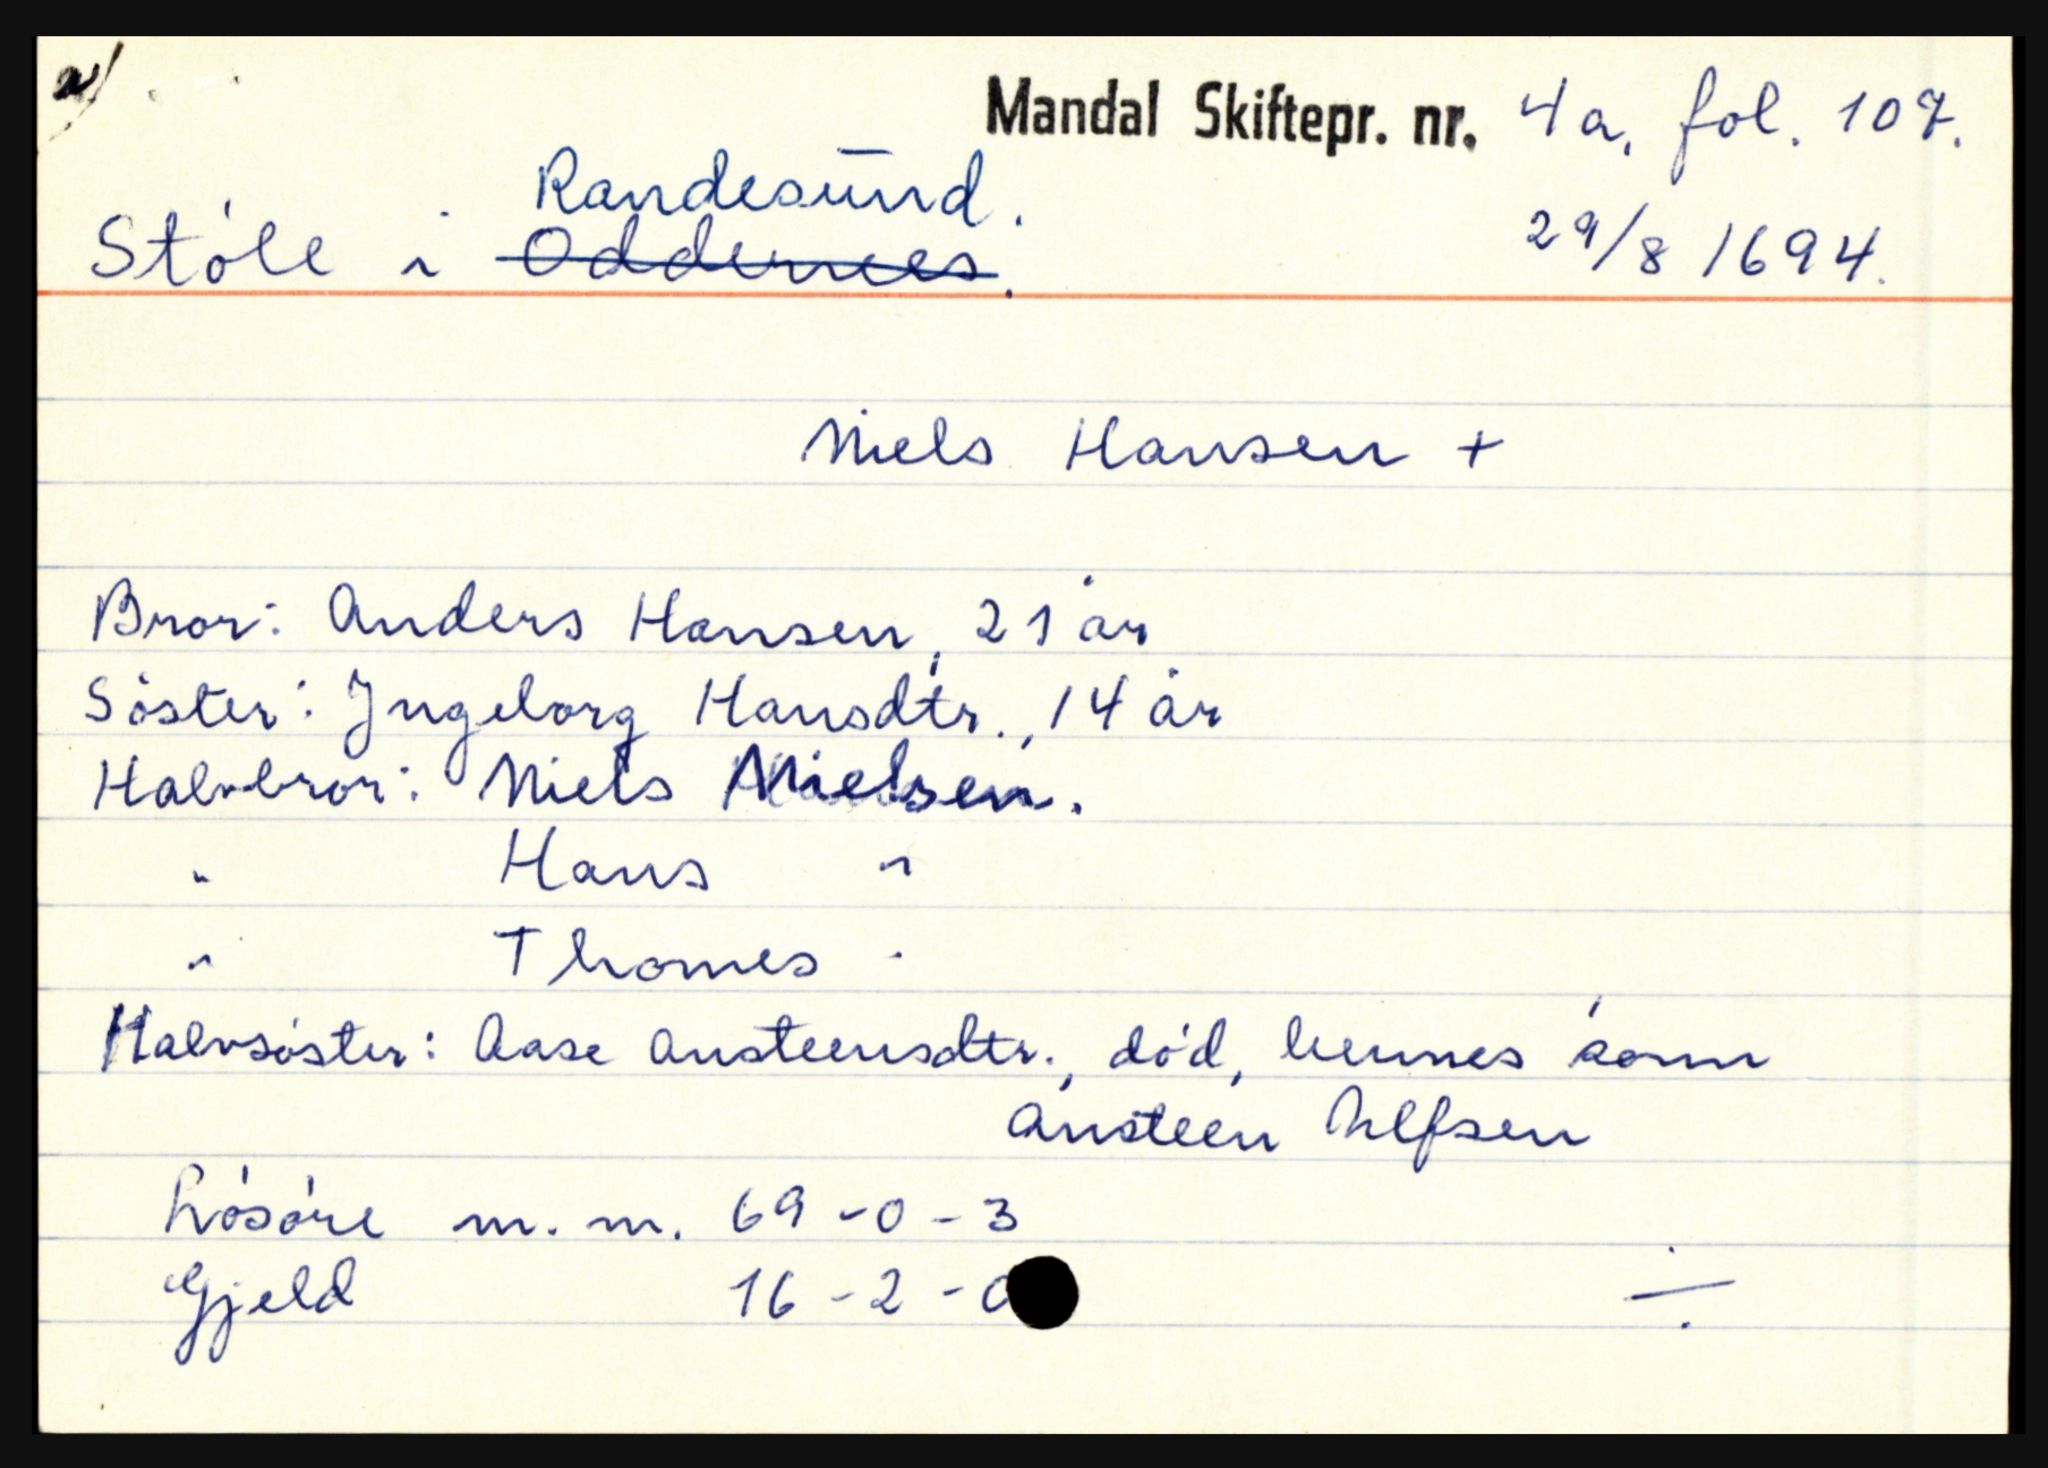 a)
Mandal Skiftepr. nr. 4a, fol. 107.
Randesund.
Støle i Oddernes. 29/8 1694.
Niels Hansen +
Bror: Anders Hansen, 21 år
Søster: Ingeborg Hansdtr., 14 år
Halvbror: Niels Nielsen.
" Hans "
" Thomes "
Halvsøster: Aase Ansteensdtr., død, hennes sønn
Ansteen Ulfsen
Løsøre m. m. 69-0-3
Gjeld 16-2-0 ÷